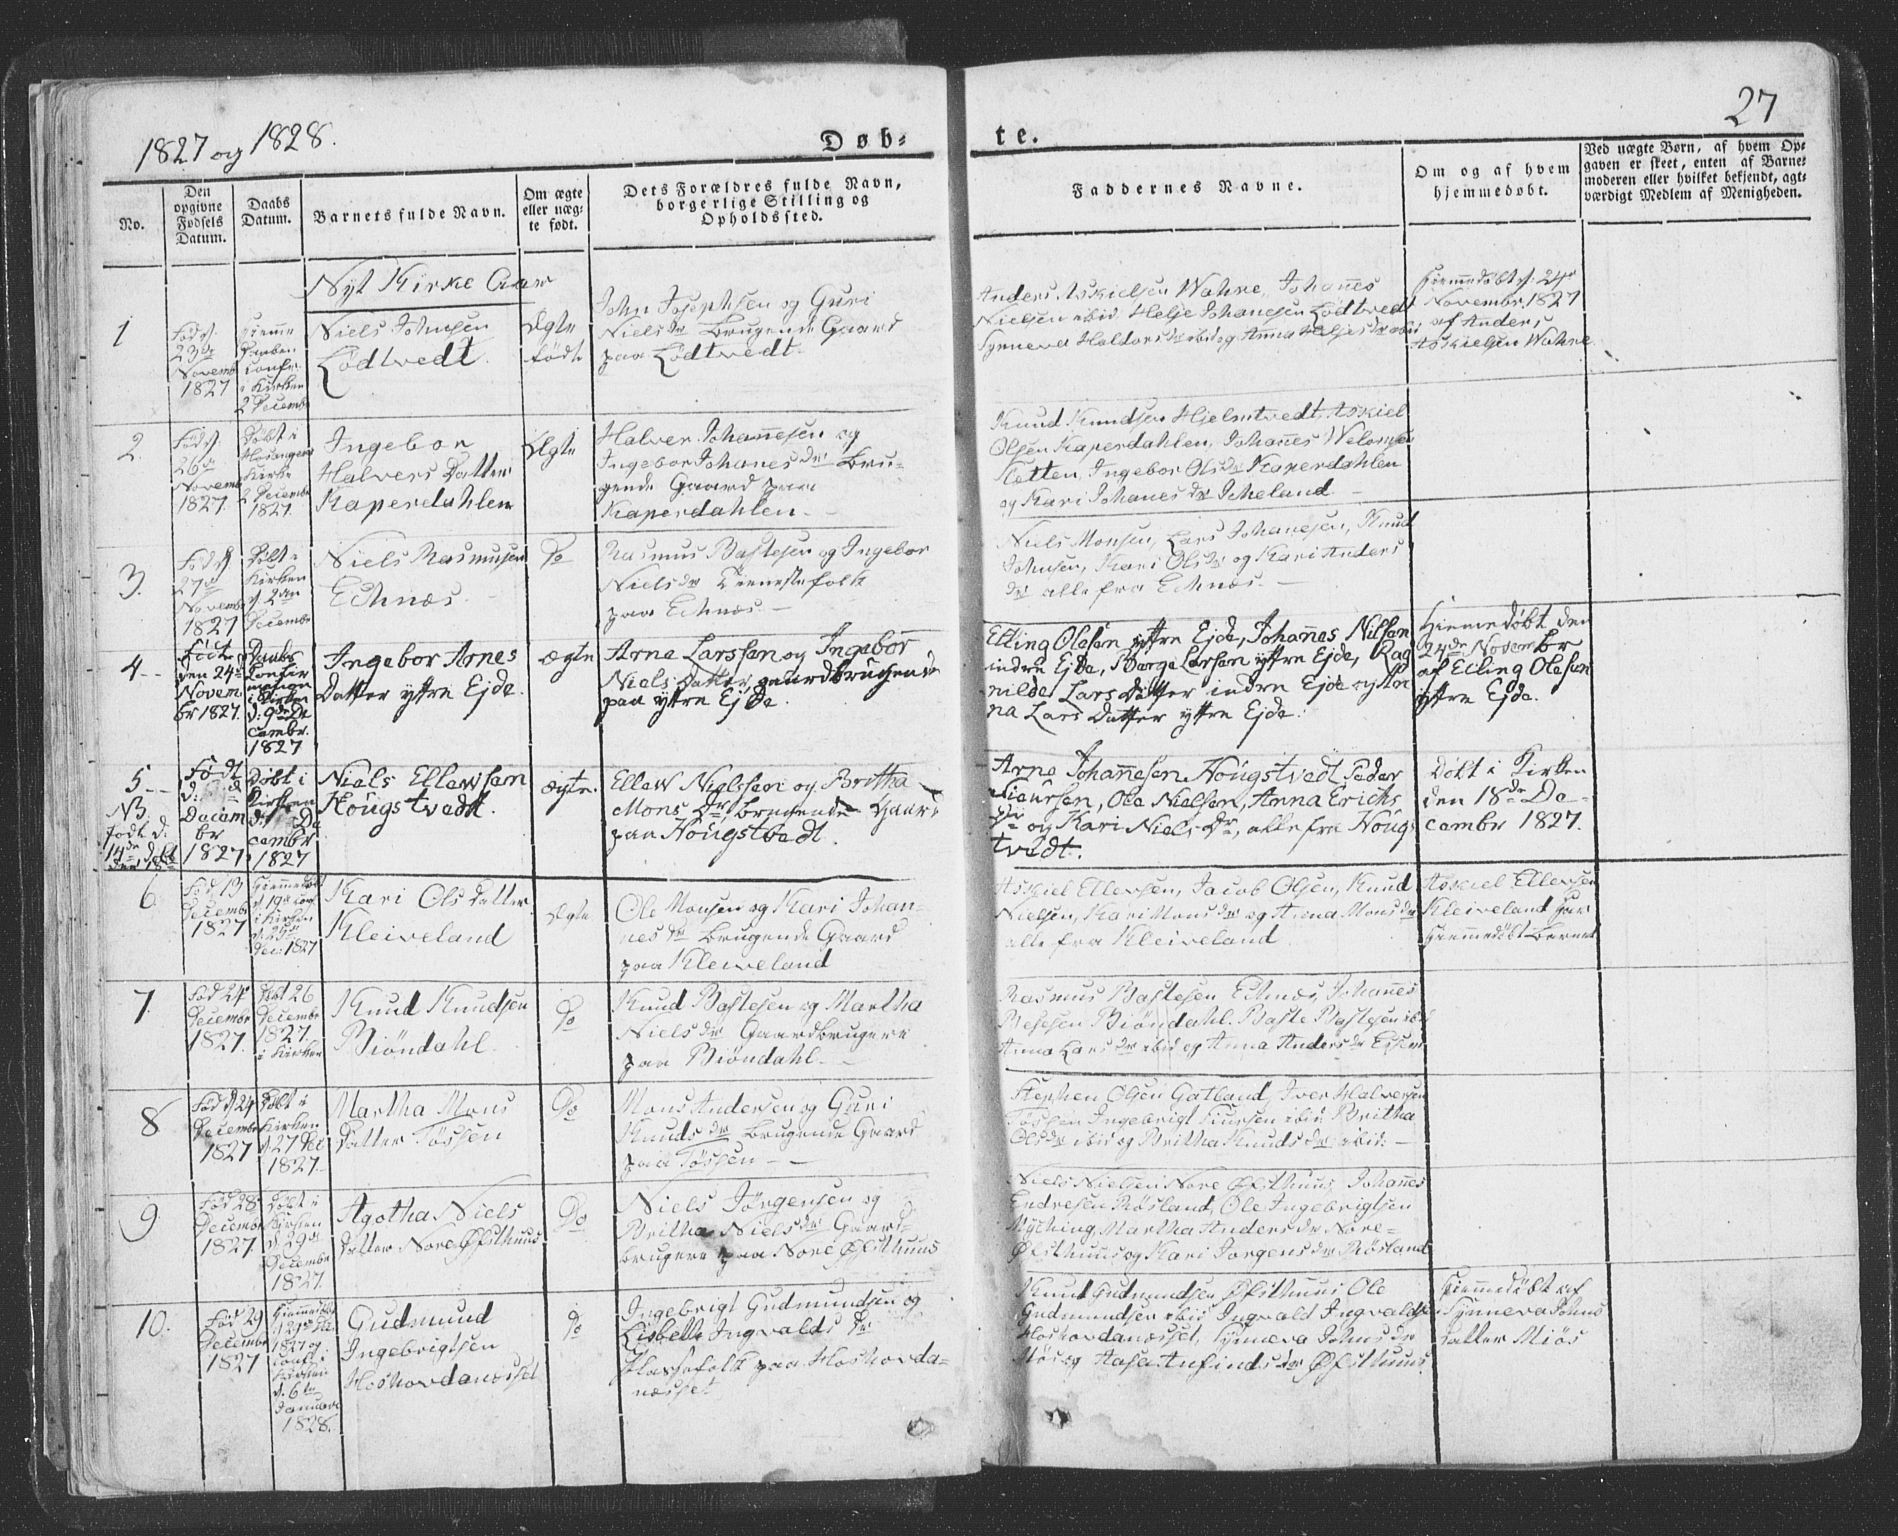 1827 og 1828.
Døb-
te.
27
No.
Den
opgivne
Fødsels
Datum.
Daabs
Datum.
Barnets fulde Navn.
Om ægte
eller uæg-
te født.
Dets Forældres fulde Navn,
borgerlige Stilling og
Opholdssted.
Faddernes Navne.
Om og af hvem
hjemmedøbt.
Ved uægte Børn, af hvem Op-
gaven er skeet, enten af Barne-
moderen eller hvilket bekjendt, agt-
værdigt Medlem af Menigheden.
Nyt Kirke Aar
1
Fød d.
23de
Novemb
1827
Hieme
Daaben
Conf.
i Kirken
2 Decembr
Niels Johnsen
Lødtvedt.
Ægte
fødte
John Josephsen og Guri
Niels dr Brugende Gaard
paa Lødtvedt.
Anders Askielsen Wahne, Johannes
Nielsen ibid, Helje Johanesen Lødtvedt
Synneva Haldors dr ibid og Anna Heljes dr ibid
Hjemmedøbt d. 24de
Novembr. 1827
af Anders
Askielsen Wahne
2.
Fød d.
26de
Novemb
1827.
Døbt i
Hosanger
Kirke
2 Decembr
1827.
Ingebor
Halvers Datter
Kaperdahlen
Ægte
Halver Johannesen og
Ingebor Johanes dr Bru-
gende Gaard paa
Kaperdahlen.
Knud Knudsen Hjelmtvedt, Askiel
Olsen Kaperdahlen, Johannes
Sletten, Ingebor Ols dr Kaperdahlen
og Kari Johanes dr Icheland
3.
Fød d
27de
Novemb
1827
Døbt i
Kirken
d 2den
Decembr
Niels Rasmusen
Echnæs.
Do
Rasmus Bastesen og Ingebor
Niels dr Tienestefolk
paa Echnæs.
Niels Monsen, Lars Johanesen, Knud
Johnsen, Kari Ols dr og Kari Anders
dr alle fra Echnæs.
4
Født
den 24de
Novem
br 1827.
Daabs
Confir
mation
i Kirken
d. 9de De
cembr.
1827
Ingebor Arnes
Datter yttre Ejde.
ægte
Arne Larssen og Ingebor
Niels Datter, gaardbrugende
paa yttre Ejde.
Elling Olesen yttre Ejde, Johannes Nilsen
indre Ejde, Børge Larsen yttre Ejde, Rag
nilde Lars Datter indre Ejde og An
na Lars Datter yttre Ejde.
Hiemedøbt den
24de Novembr
af Elling Olesen
yttre Ejde.
5
NB
født d:
14de døbt
den 18de
Født
Decem
br
1827.
Døbt i
Kirken
De
cembr
1827
Niels Ellewsen
Hougstvedt.
ægte.
Ellew Nielssen og Britha
Mons Dr, brugende Gaard
paa Hougstvedt.
Arne Johannesen Hougstvedt Peder
Siursen, Ole Nielsen, Anna Erichs
Dr og Kari Niels Dr, alle fra Houg
tvedt.
Døbt i Kirken
den 18de De-
cembr 1827.
6
Fød 13
Decembr
1827
Hiemmedøbt
d 19de Conf
i Kirken
d. 25de
Dec: 1827
Kari Ols Datter
Kleiveland
Ægte
Ole Monsen og Kari Johan-
nes dr Brugende Gaard
paa Kleiveland
Askiel Ellevsen, Jacob Olsen, Knud
Nielsen, Kari Mons dr og Anna Mons dr
alle fra Kleiveland
Askiel Ellevsen
Kleiveland har
hiemmedøbt Barnet
7.
Fød 24de
Decembr
1827.
Døbt 26
Decembr
1827.
i Kirken
Knud Knudsen
Biøndahl.
Do
Knud Bastesen og Martha
Niels dr Gaardbrugere
paa Biøndahl.
Rasmus Bastesen Echnæs, Johannes
Besesen Biøndahl. Baste Bastesen ibid
Anna Lars dr ibid og Anna Anders dr
8
Fød d 24
Decembr
1827
Døbt i
Kirken
d. 27 Dec
1827.
Martha Mons
Datter Tøssen
Do
Mons Andersen og Guri
Knuds dr Brugende Gaard
paa Tøssen
Stephen Olsen Gatland, Iver Halversen
Tøssen Ingebrigt Siursen ibid Britha
Ols dr ibid og Britha Knuds dr ibid:
9.
Fød 28
Decembr
1827.
Døbt i
Kirken
d 29de
Decembr
1827.
Agotha Niels
Datter Nore Øfsthuus
Do
Niels Jørgensen og
Britha Niels dr Gaard-
brugere paa Nore Øfsthuus
Niels Nielsen Nore Øfsthuus, Johannes
Endresen Røsland, Ole Ingebrigtsen
Myching, Martha Anders dr Nore-
Øfsthuus og Kari Jørgens dr Røsland
10.
Fød 29
Decembr
1827
Hiemmedøbt
1827 og
Conf. i
Kirken
d. 6te
Januari
1828.
Gudmund
Ingebrigtsen
Hoshovdanæsset
Do
Ingebrigt Gudmundsen og
Lisbeth Ingvalds dr
Huusfolk paa Hoshovda-
næsset
Knud Gudmundsen Øfsthuus Ole
Gudmundsen ibid Ingvald Ingvaldsen
Hoshovdanæsset, Synneva Johns dr
Miøs og Aasa Anfinds dr Øfsthuus
Hiemmedøbt af
Synneva Johns
datter Miøs